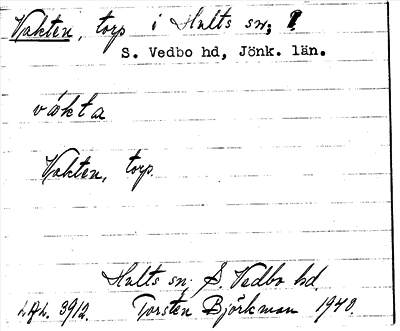 Vakten, torp i Hults sn,
S. Vedbo hd, Jönk. län.
vákta
Vakten, torp.
Hults sn, S. Vedbo hd.
Torsten Björkman 1940.